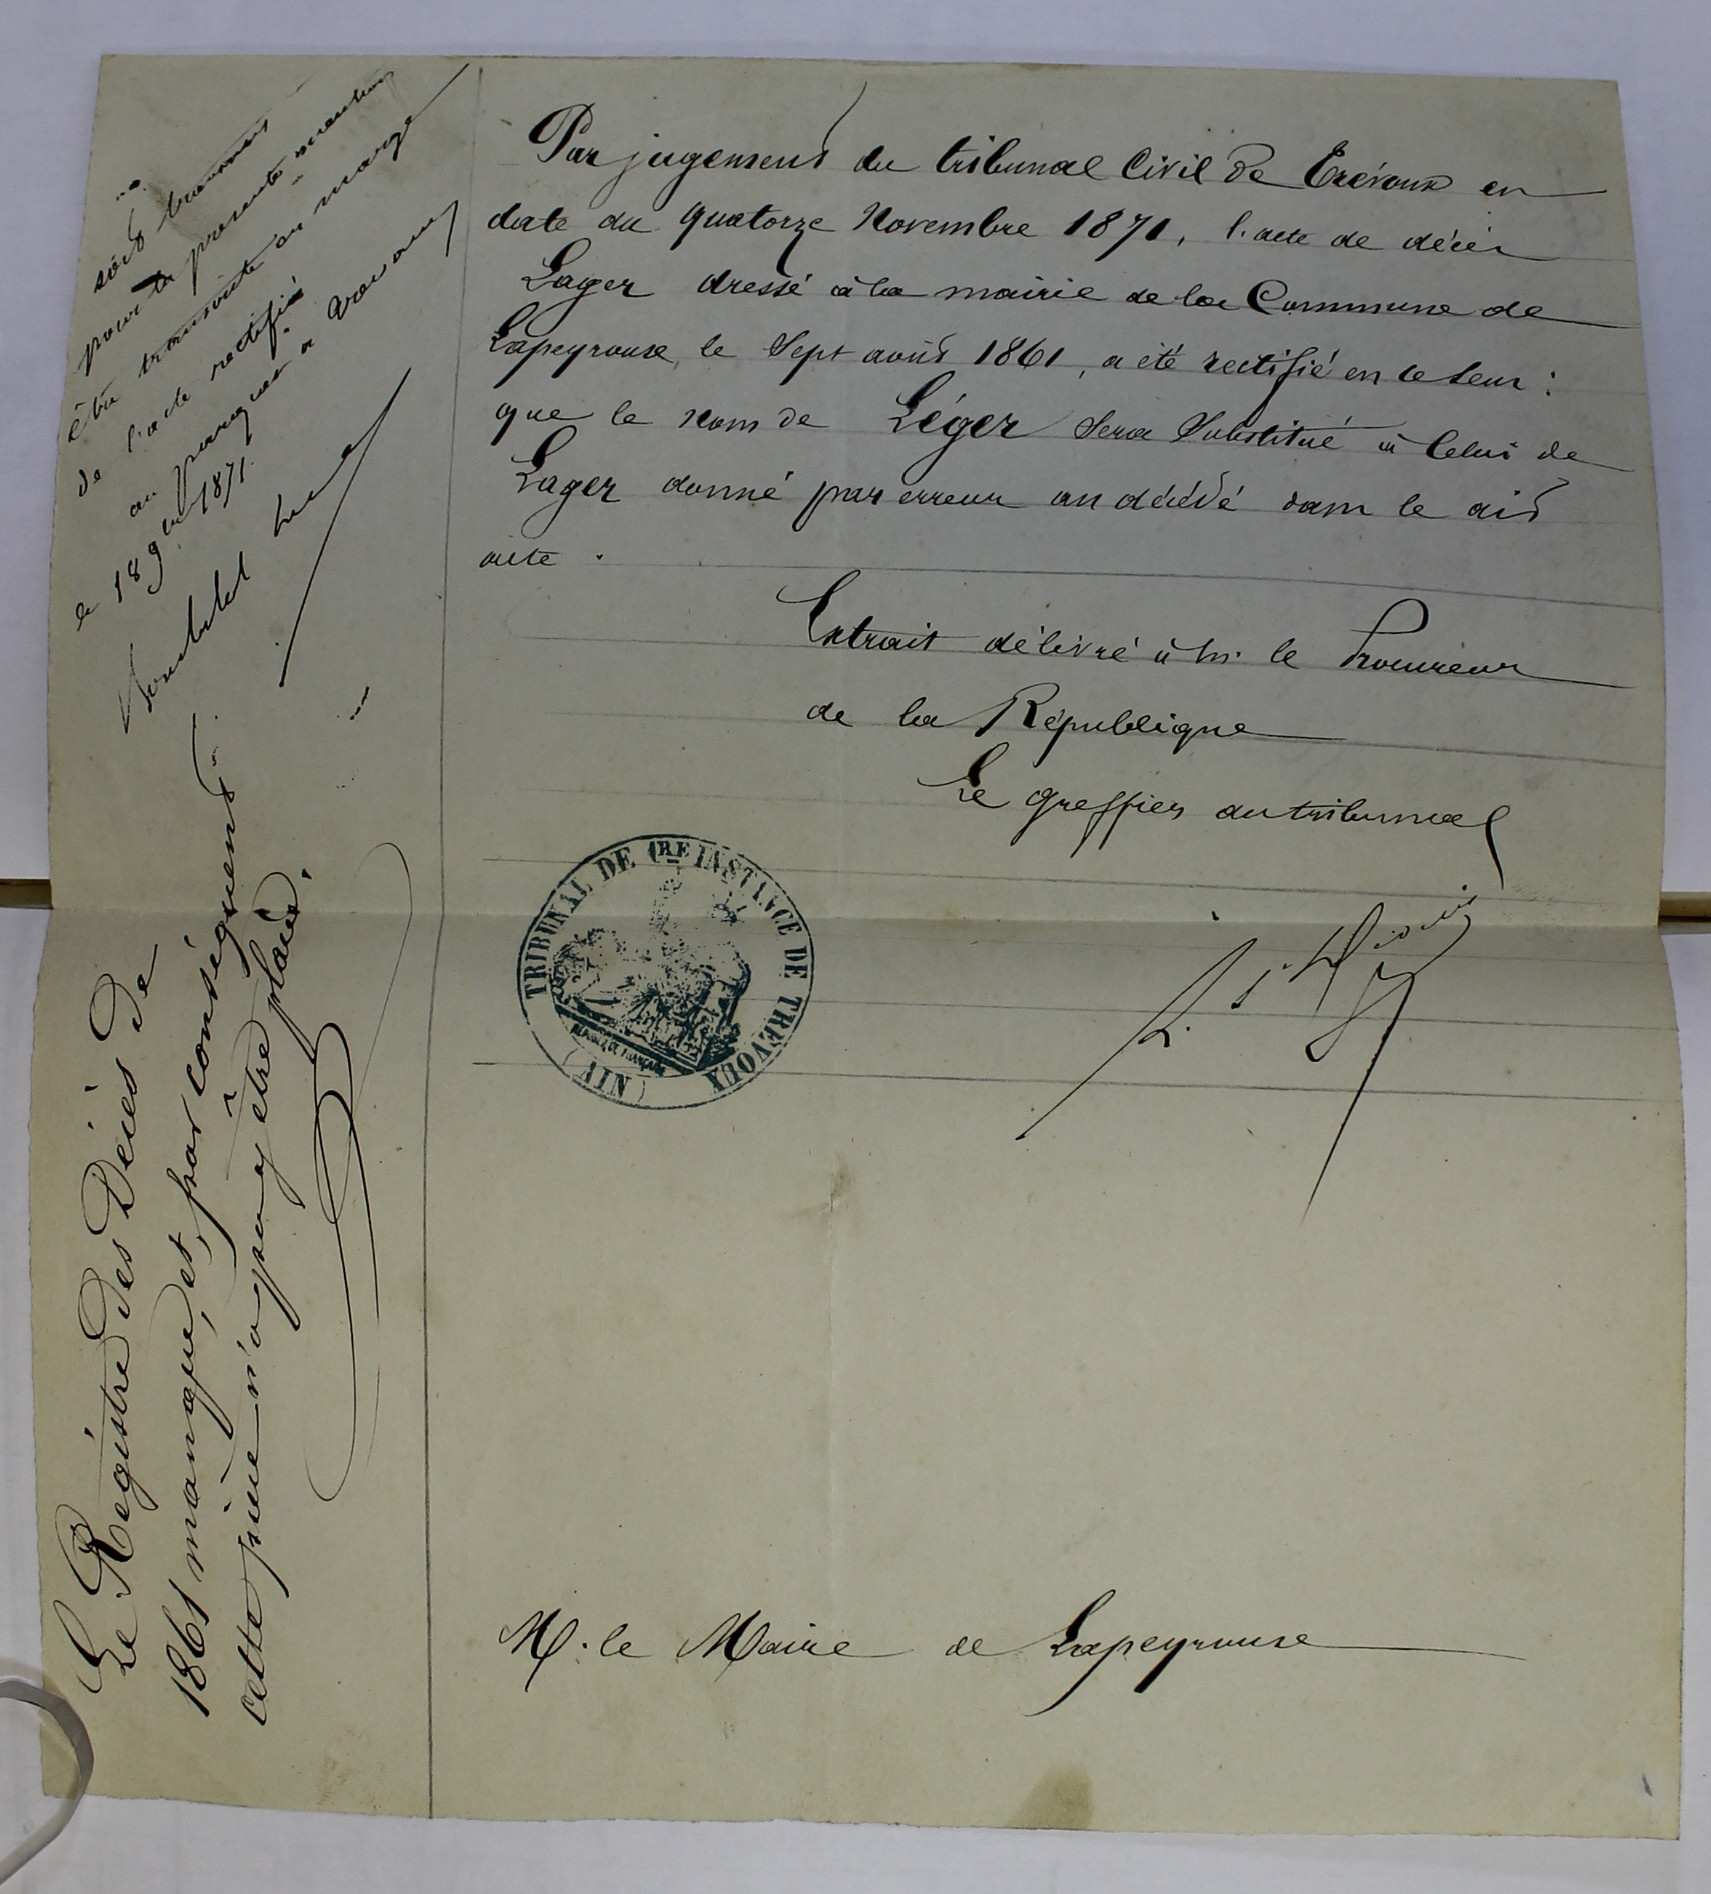 Par jugement du tribunal Civil de Trévoux en
date du quatorze Novembre 1871, l'acte de décès
Lager dressé à la mairie de la Commune de
Lapeyrouse, le Sept août 1861, a été rectifié en ce sens :
que le nom de Léger sera substitué à celui de
Lager donné par erreur au décédé dans le dit
acte.
Extrait délivré à M. le Procureur
de la République
Le greffier du tribunal
TRIBUNAL DE 1RE INSTANCE DE TRÉVOUX
(AIN)
RÉPUBLIQUE FRANÇAISE
M. le Maire de Lapeyrouse
soit transmis
pour la présente mention
être transcrite en marge
de l'acte rectifié
au parquet à Trévoux
le 18 9bre 1871.
Le Régistre des Décès de
1861 manque, et, par conséquent
cette pièce n'a pu y être placée.